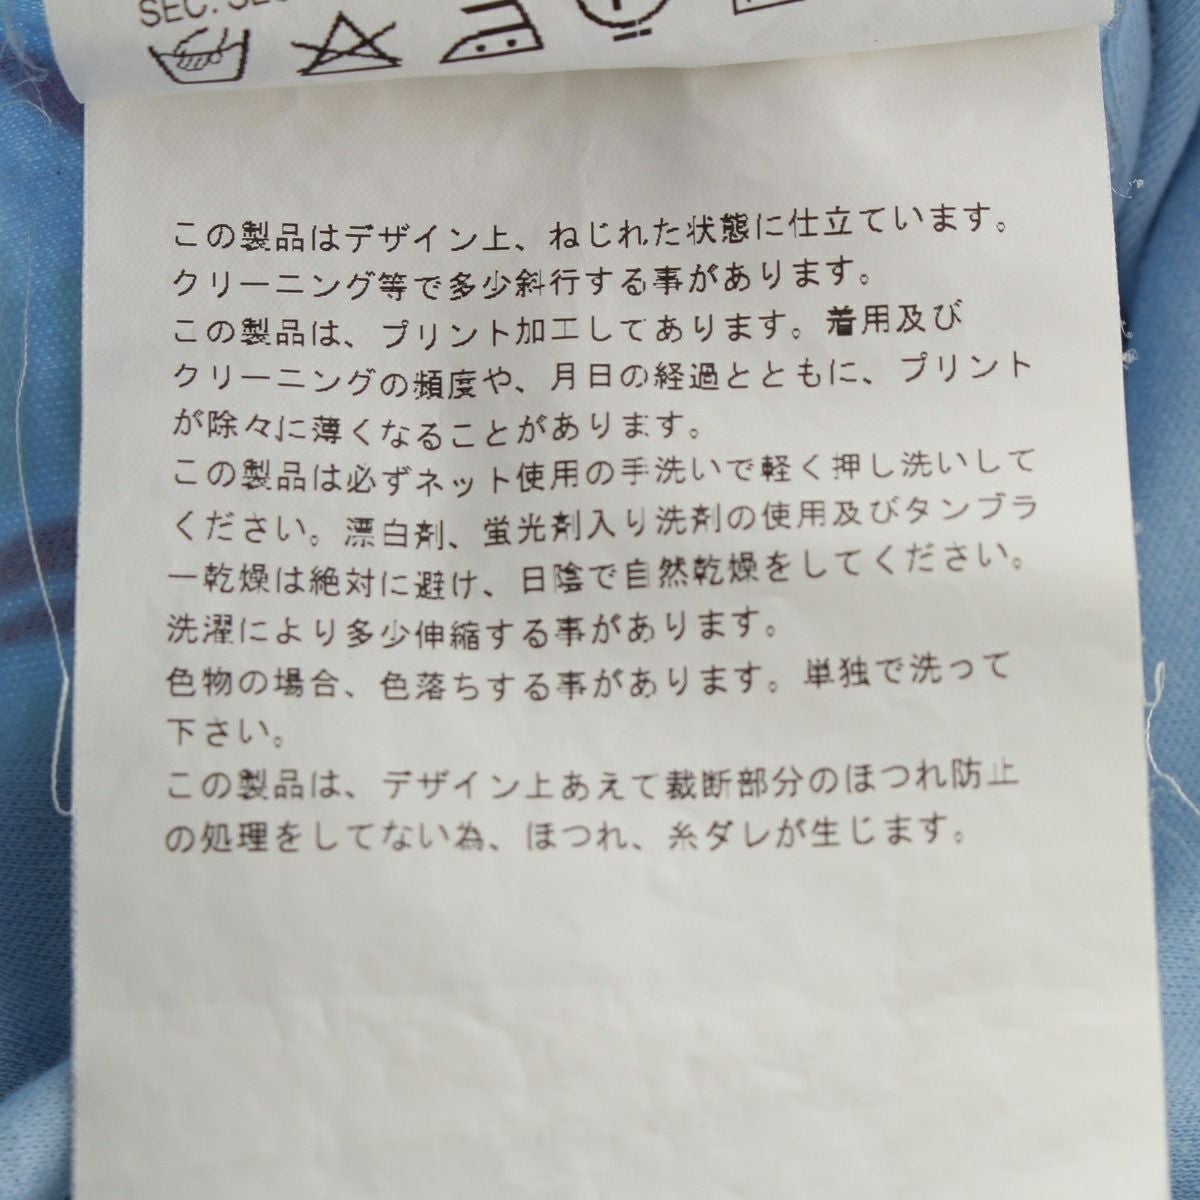 この製品はデザイン上、ねじれた状態に仕立ています。
クリーニング等で多少斜行する事があります。
この製品は、プリント加工してあります。着用及び
クリーニングの頻度や、月日の経過とともに、プリント
が除々に薄くなることがあります。
この製品は必ずネット使用の手洗いで軽く押し洗いして
ください。漂白剤、蛍光剤入り洗剤の使用及びタンブラ
ー乾燥は絶対に避け、日陰で自然乾燥をしてください。
洗濯により多少伸縮する事があります。
色物の場合、色落ちする事があります。単独で洗って
下さい。
この製品は、デザイン上あえて裁断部分のほつれ防止
の処理をしてない為、ほつれ、糸ダレが生じます。